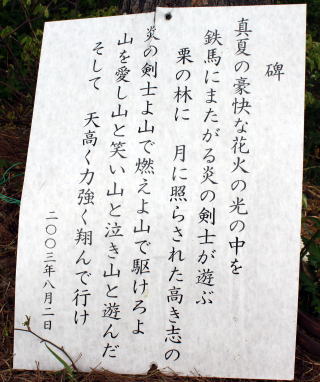 碑
真夏の豪快な花火の光の中を
鉄馬にまたがる炎の剣士が遊ぶ
栗の林に 月に照らされた高き志の
炎の剣士よ山で燃えよ山で駆けろよ
山を愛し山と笑い山と泣き山と遊んだ
そして 天高く力強く翔んで行け
二〇〇三年八月二日